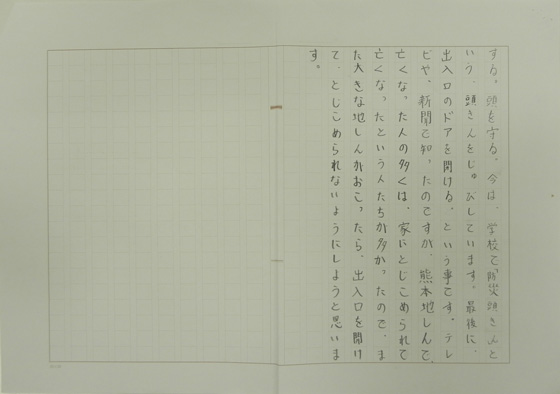 する。頭を守る。今は、学校で「防災頭きんと
いう、頭きんをじゅんびしています。最後に、
出入口のドアを開ける、という事です。テレ
ビや、新聞で知ったのですが、熊本地しんで、
亡くなった人の多くは、家にとじこめられて
亡くなったという人たちが多かったので、ま
た大きな地しんがおこったら、出入口を開け
て、とじこめられないようにしようと思いま
す。